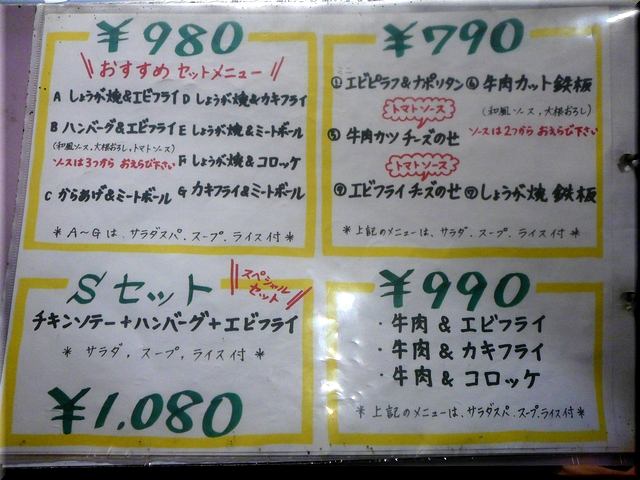 ¥980
おすすめ セットメニュー
A しょうが焼&エビフライ D しょうが焼&カキフライ
B ハンバーグ&エビフライ E しょうが焼&ミートボール
(和風ソース、大根おろし、トマトソース)
ソースは3つから おえらび下さい F しょうが焼&コロッケ
C からあげ&ミートボール G カキフライ&ミートボール
*A〜Gは、サラダスパ、スープ、ライス付*
¥790
ミニ
① エビピラフ&ナポリタン ④ 牛肉カット鉄板
トマトソース (和風ソース、大根おろし)
⑤ 牛肉カツ チーズのせ ソースは2つから おえらび下さい
トマトソース
エビフライ チーズのせ ⑦ しょうが焼 鉄板
*上記のメニューは、サラダ、スープ、ライス付*
Sセット
スペシャル
セット
チキンソテー+ハンバーグ+エビフライ
* サラダ、スープ、ライス付 *
¥1,080
¥990
・牛肉 & エビフライ
・牛肉 & カキフライ
・牛肉 & コロッケ
*上記のメニューは、サラダスパ、スープ、ライス付*